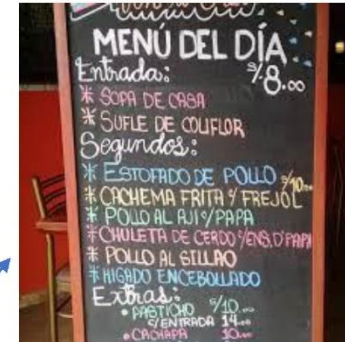 MENÚ DEL DÍA
Entrada: S/.8.00
* SOPA DE CASA
* SUFLE DE COLIFLOR
Segundos:
* ESTOFADO DE POLLO S/10.00
* CACHEMA FRITA C/ FREJOL
* POLLO AL AJI C/PAPA
* CHULETA DE CERDO C/ENS. D'PAPA
* POLLO AL SILLAO
* HIGADO ENCEBOLLADO
Extras:
• PASTICHO S/10.00
C/ENTRADA 14.00
• CACHAPA 10.00